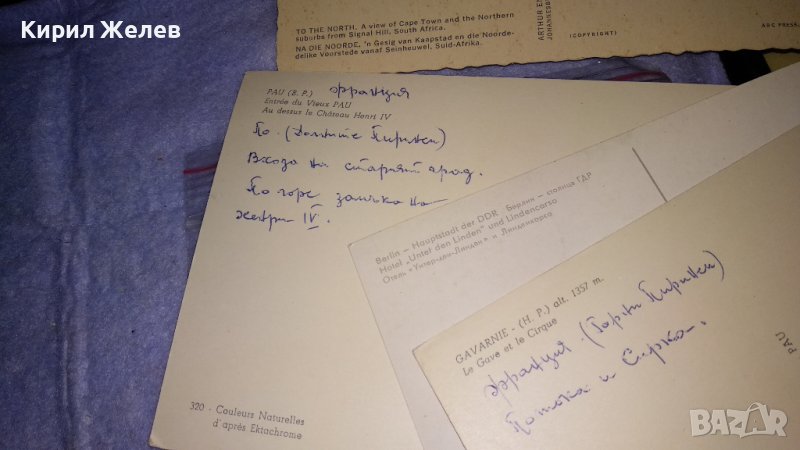 Кирил Желев
TO THE NORTH. A view of Cape Town and the Northern
suburbs from Signal Hill, South Africa.
NA DIE NOORDE, 'n Gesig van Kaapstad en die Noorde-
delike Voorstede vanaf Seinheuwel, Suid-Afrika.
ARTHUR
JOHANNESB
(COPYRIGHT)
ABC PRESS,
PAU (B. P.) Франция
Entrée du Vieux PAU
Au dessus le Château Henri IV
По. (Долните Пиринеи)
Входа на стария град.
По горе замъка на
Хенри IV.
320 - Couleurs Naturelles
d'après Ektachrome
Berlin – Hauptstadt der DDR Берлин – столица ГДР
Hotel „Unter den Linden" und Lindencorso
Отель «Унтер-ден-Линден» и Линденкорсо
GAVARNIE - (H. P.) alt. 1357 m.
Le Gave et le Cirque
Франция. (Горни Пиринеи)
Потока и Цирка.
PAU
BAZAR